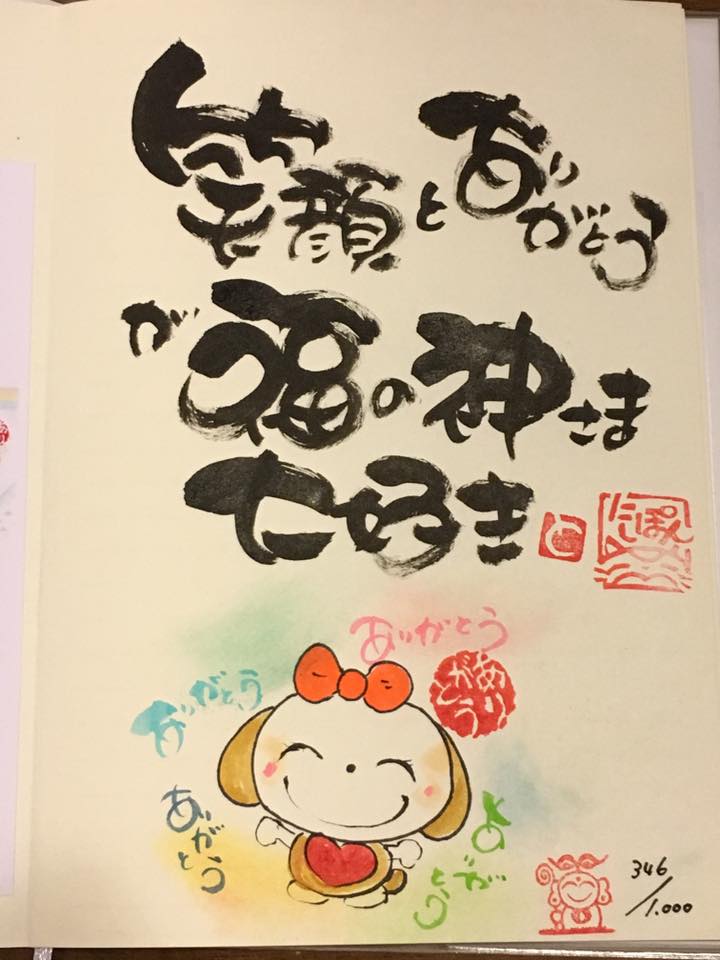 笑顔とありがとう
が福の神さま
大好き
にっぽん
ありがとう
ありがとう
ありがとう
ありがとう
ありがとう
346/1.000